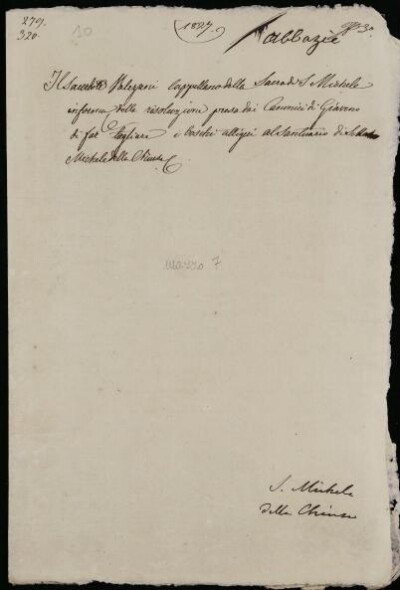 279.
320.
10
1827
Abbazie
N° 3°
Il Sacerdote Malezani Cappellano della Sacra di S. Michele
informa della risoluzione presa dai Canonici di Giaveno
di far tagliare i boschi attigui al Santuario di S.
Michele della Chiusa
Mazzo 7
S. Michele
della Chiusa